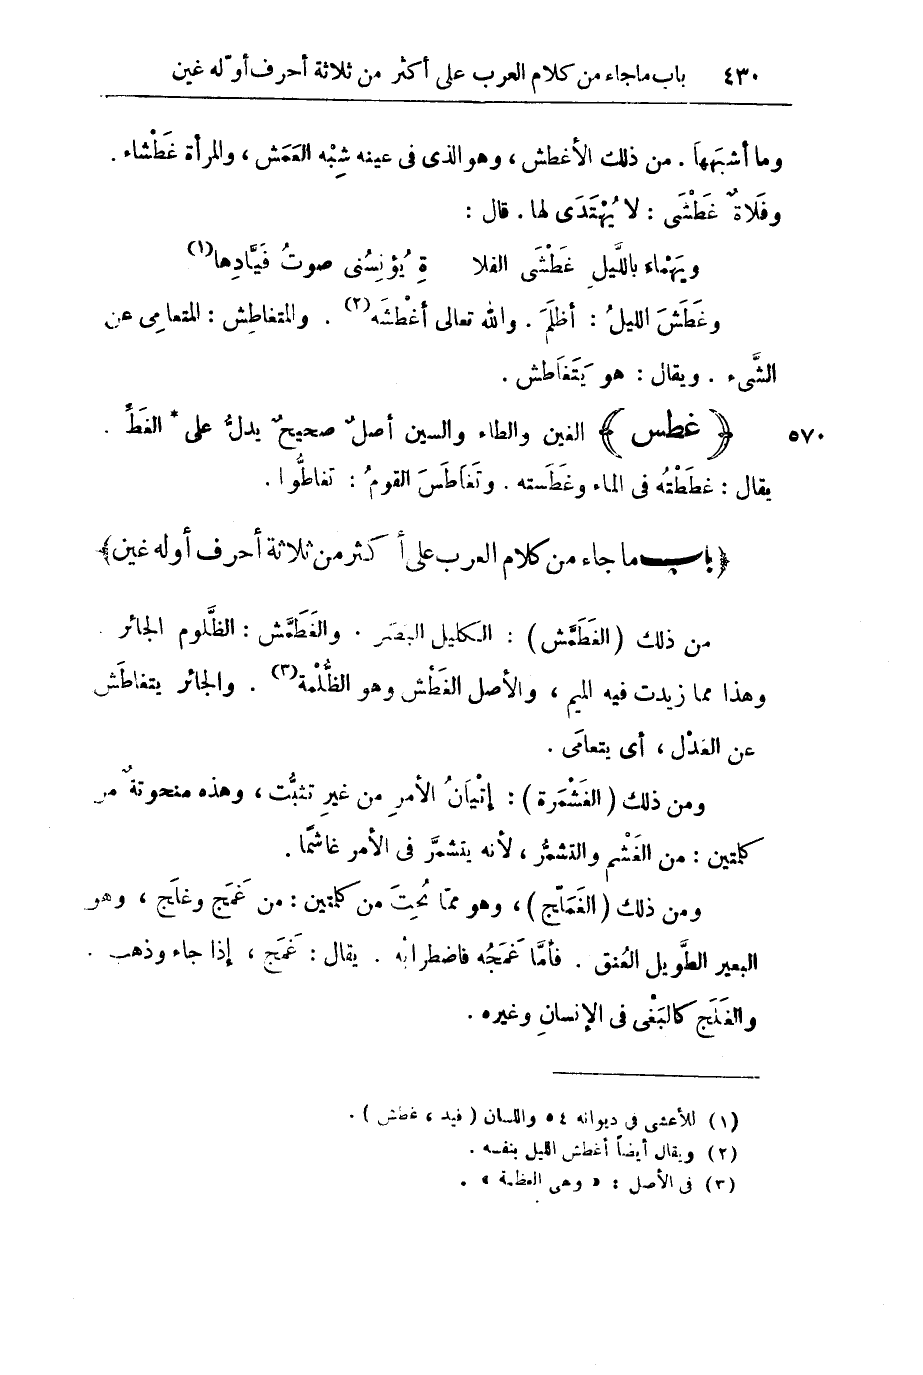 ٤٣٠ باب ما جاء من كلام العرب على أكثر من ثلاثة أحرف أوّله غين
وما أشبَهها . من ذلك الأغطش ، وهو الذى فى عينه شِبْه العَمَش ، والمرأة غَطْشاء .
وفَلاةٌ غَطْشَى : لا يُهْتَدَى لها . قال :
ويَهْماء باللَّيلِ غَطْشَى الفلا ةِ يُؤنِسُنى صوتُ فَيَّادِها(١)
وغَطَشَ الليلُ : أظلَمَ . والله تعالى أغْطشَه(٢) . والمتغاطِش : المتعامِى عن
الشَّىء . ويقال : هو يَتَغَاطش .
٥٧٠ ﴿ غطس ﴾ الغين والطاء والسين أصلٌ صحيحٌ يدلُّ على * الغَطّ .
يقال : غطَطْتُه فى الماء وغَطَسته . وتَغَاطَسَ القومُ : تغاطُّوا .
﴿ باب ما جاء من كلام العرب على أكثر من ثلاثة أحرف أوله غين ﴾
من ذلك ( الغَطَمَّش ) : الكليل البصَر . والغَطَمَّش : الظَّلوم الجائر .
وهذا مما زيدت فيه الميم ، والأصل الغَطْش وهو الظُّلْمة(٣) . والجائر يتغاطَش
عن العَدْل ، أى يتعامَى .
ومن ذلك ( الغَشْمَرة ) : إتْيَانُ الأمرِ من غيرِ تثبُّت ، وهذه منحوتةٌ من
كلمتين : من الغَشْم والتشمُّر ، لأنه يتشمَّر فى الأمر غاشمًا .
ومن ذلك ( الغَمَلّج ) ، وهو ممّا نُحِتَ من كلمتين : من غَمَج وغلَج ، وهو
البعير الطَّويل العُنق . فأمَّا غَمَجُه فاضطرابُه . يقال : غَمَج ، إذا جاء وذهب .
والغَلَج كالبَغْى فى الإنسانِ وغيره .
(١) للأعشى فى ديوانه ٥٤ واللسان ( فيد ، غطش ) .
(٢) ويقال أيضاً أغطش الليل بنفسه .
(٣) فى الأصل : « وهى العظمة » .